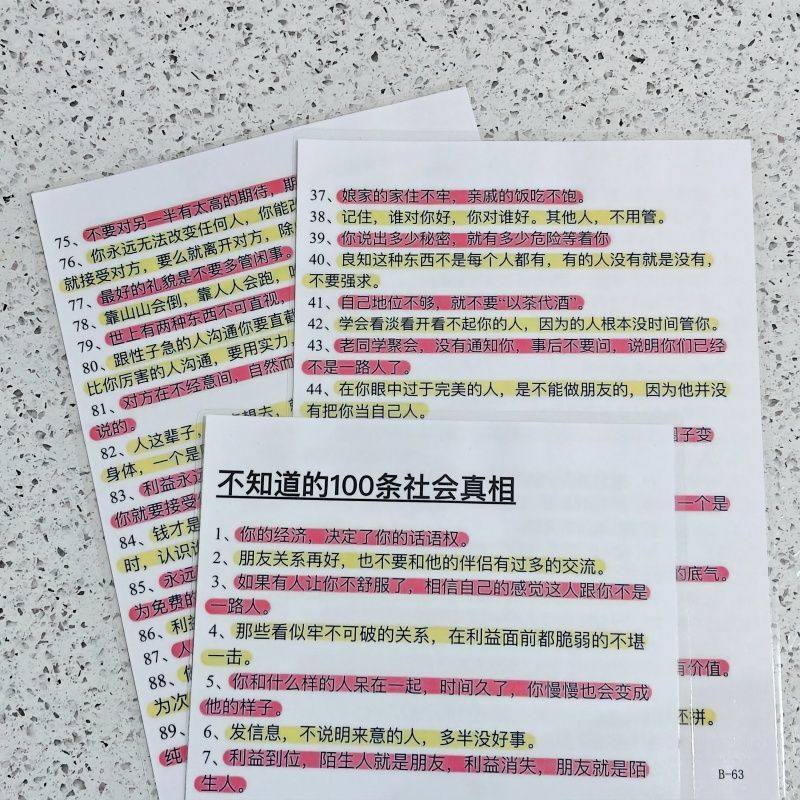 不知道的100条社会真相
1、你的经济，决定了你的话语权。
2、朋友关系再好，也不要和他的伴侣有过多的交流。
3、如果有人让你不舒服了，相信自己的感觉这人跟你不是
一路人。
4、那些看似牢不可破的关系，在利益面前都脆弱的不堪
一击。
5、你和什么样的人呆在一起，时间久了，你慢慢也会变成
他的样子。
6、发信息，不说明来意的人，多半没好事。
7、利益到位，陌生人就是朋友，利益消失，朋友就是陌
生人。
37、娘家的家住不牢，亲戚的饭吃不饱。
38、记住，谁对你好，你对谁好。其他人，不用管。
39、你说出多少秘密，就有多少危险等着你
40、良知这种东西不是每个人都有，有的人没有就是没有，
不要强求。
41、自己地位不够，就不要“以茶代酒”。
42、学会看淡看开看不起你的人，因为的人根本没时间管你。
43、老同学聚会，没有通知你，事后不要问，说明你们已经
不是一路人了。
44、在你眼中过于完美的人，是不能做朋友的，因为他并没
有把你当自己人。
子变
一个是
的底气。
有价值。
还拼。
B-63
75、不要对另一半有太高的期待，期
76、你永远无法改变任何人，你能改
就接受对方，要么就离开对方，除
77、最好的礼貌是不要多管闲事。
78、靠山山会倒，靠人人会跑，
79、世上有两种东西不可直视，
80、跟性子急的人沟通你要直截
比你厉害的人沟通，要用实力，
81、对方在不经意间，自然而
说的。
82、人这辈子，
身体，一个是
83、利益永远
你就要接受
84、钱才是
时，认识
85、永远
为免费的
86、利
87、人
88、
为次
89、
纯